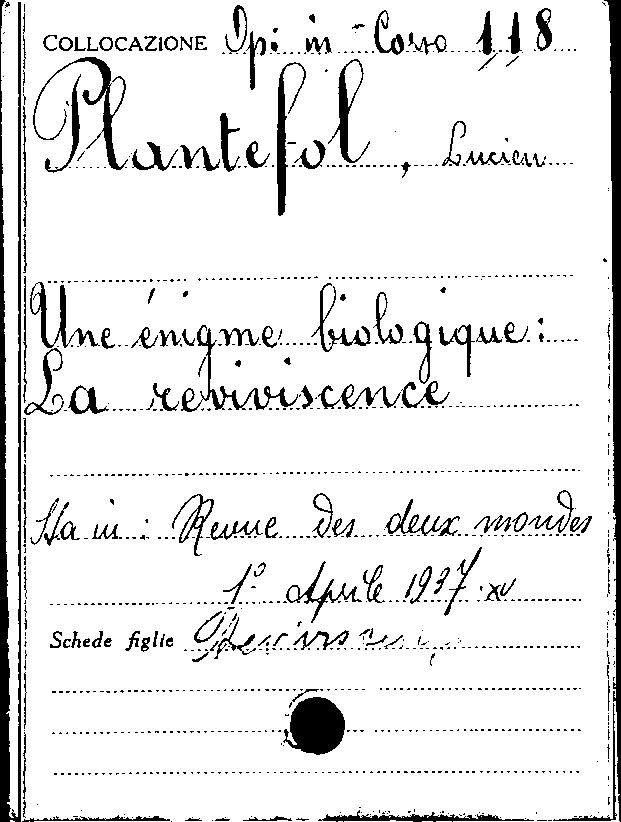 COLLOCAZIONE Opi in - Corso 118
Plantefol, Lucien
Une énigme biologique:
La reviviscence
Sta in: Revue des deux mondes
1° Aprile 1937.XV
Schede figlie